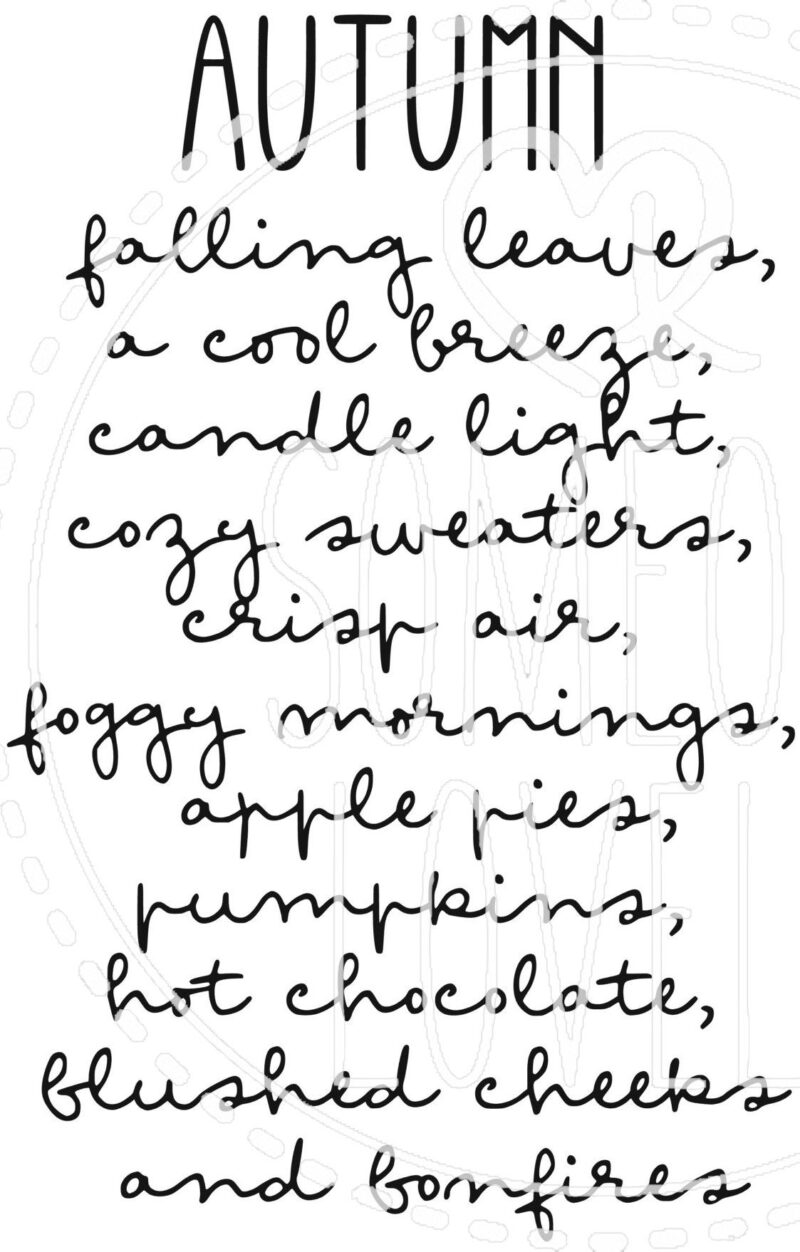 AUTUMN
falling leaves,
a cool breeze,
candle light,
cozy sweaters,
crisp air,
foggy mornings,
apple pies,
pumpkins,
hot chocolate,
blushed cheeks
and bonfires
SOMEO
LOVEL